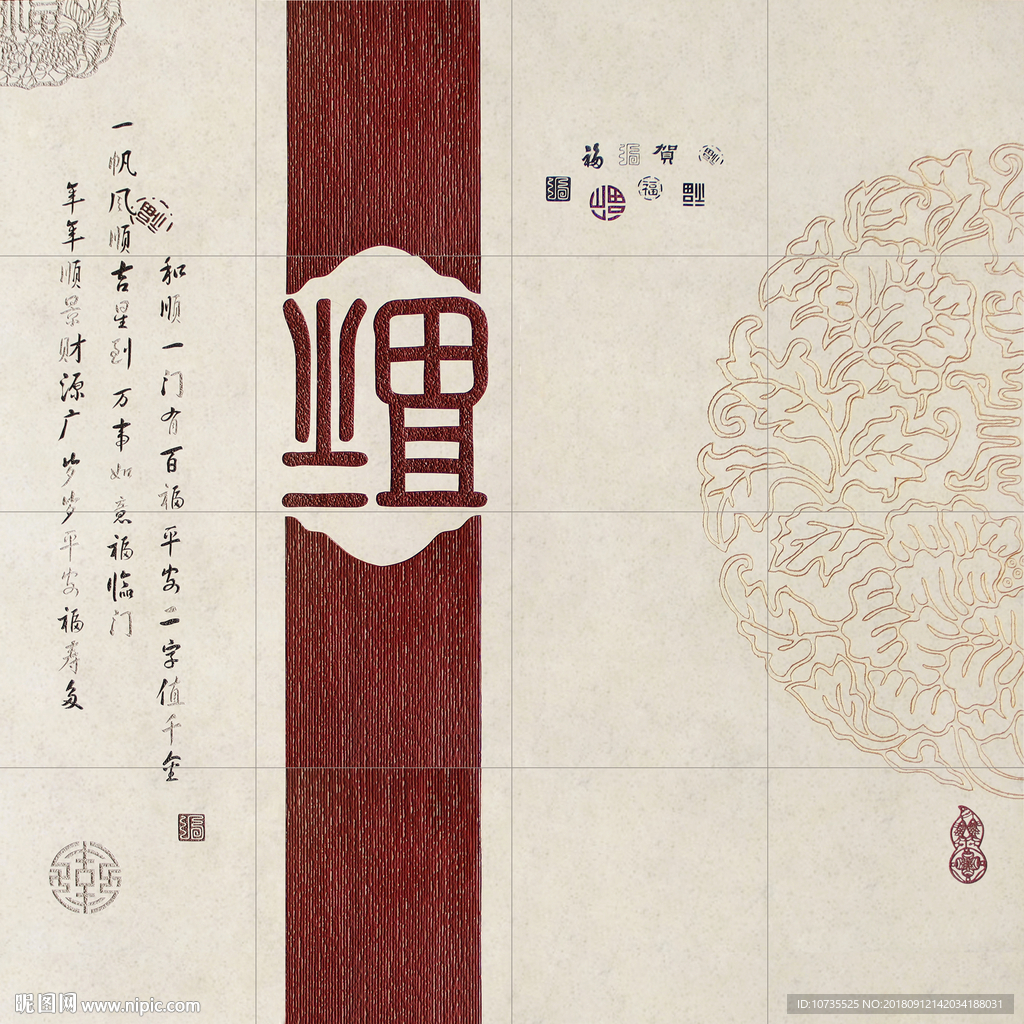 和顺一门有百福平安二字值千金
一帆风顺吉星到万事如意福临门
年年顺景财源广岁岁平安福寿多
福
福 賀
福
昵图网 www.nipic.com
ID:10735525 NO:20180912142034188031